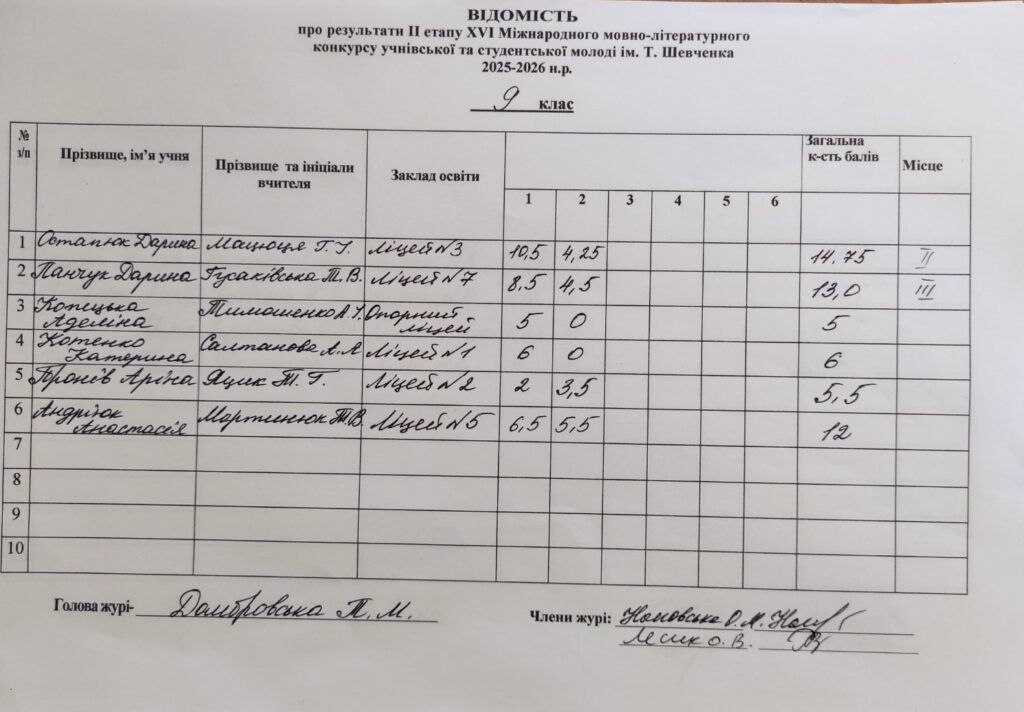 ВІДОМІСТЬ
про результати ІІ етапу XVI Міжнародного мовно-літературного
конкурсу учнівської та студентської молоді ім. Т. Шевченка
2025-2026 н.р.
9 клас
№ з/п Прізвище, ім’я учня Прізвище та ініціали вчителя Заклад освіти 1 2 3 4 5 6 Загальна к-сть балів Місце
1 Остапюк Дарина Мацюця Г. І. Ліцей №3 10,5 4,25 14,75 ІІ
2 Панчук Дарина Гусаківська Т. В. Ліцей №7 8,5 4,5 13,0 ІІІ
3 Копецька Аделіна Тимошенко А. І. Опорний ліцей 5 0 5
4 Котенко Катерина Салтанова Л. А. Ліцей №1 6 0 6
5 Пронів Аріна Яцик Т. Г. Ліцей №2 2 3,5 5,5
6 Андріюк Анастасія Мартинюк Т. В. Ліцей №5 6,5 5,5 12
7
8
9
10
Голова журі- Домбровська Т. М.
Члени журі: О. М.
Лесик О. В.